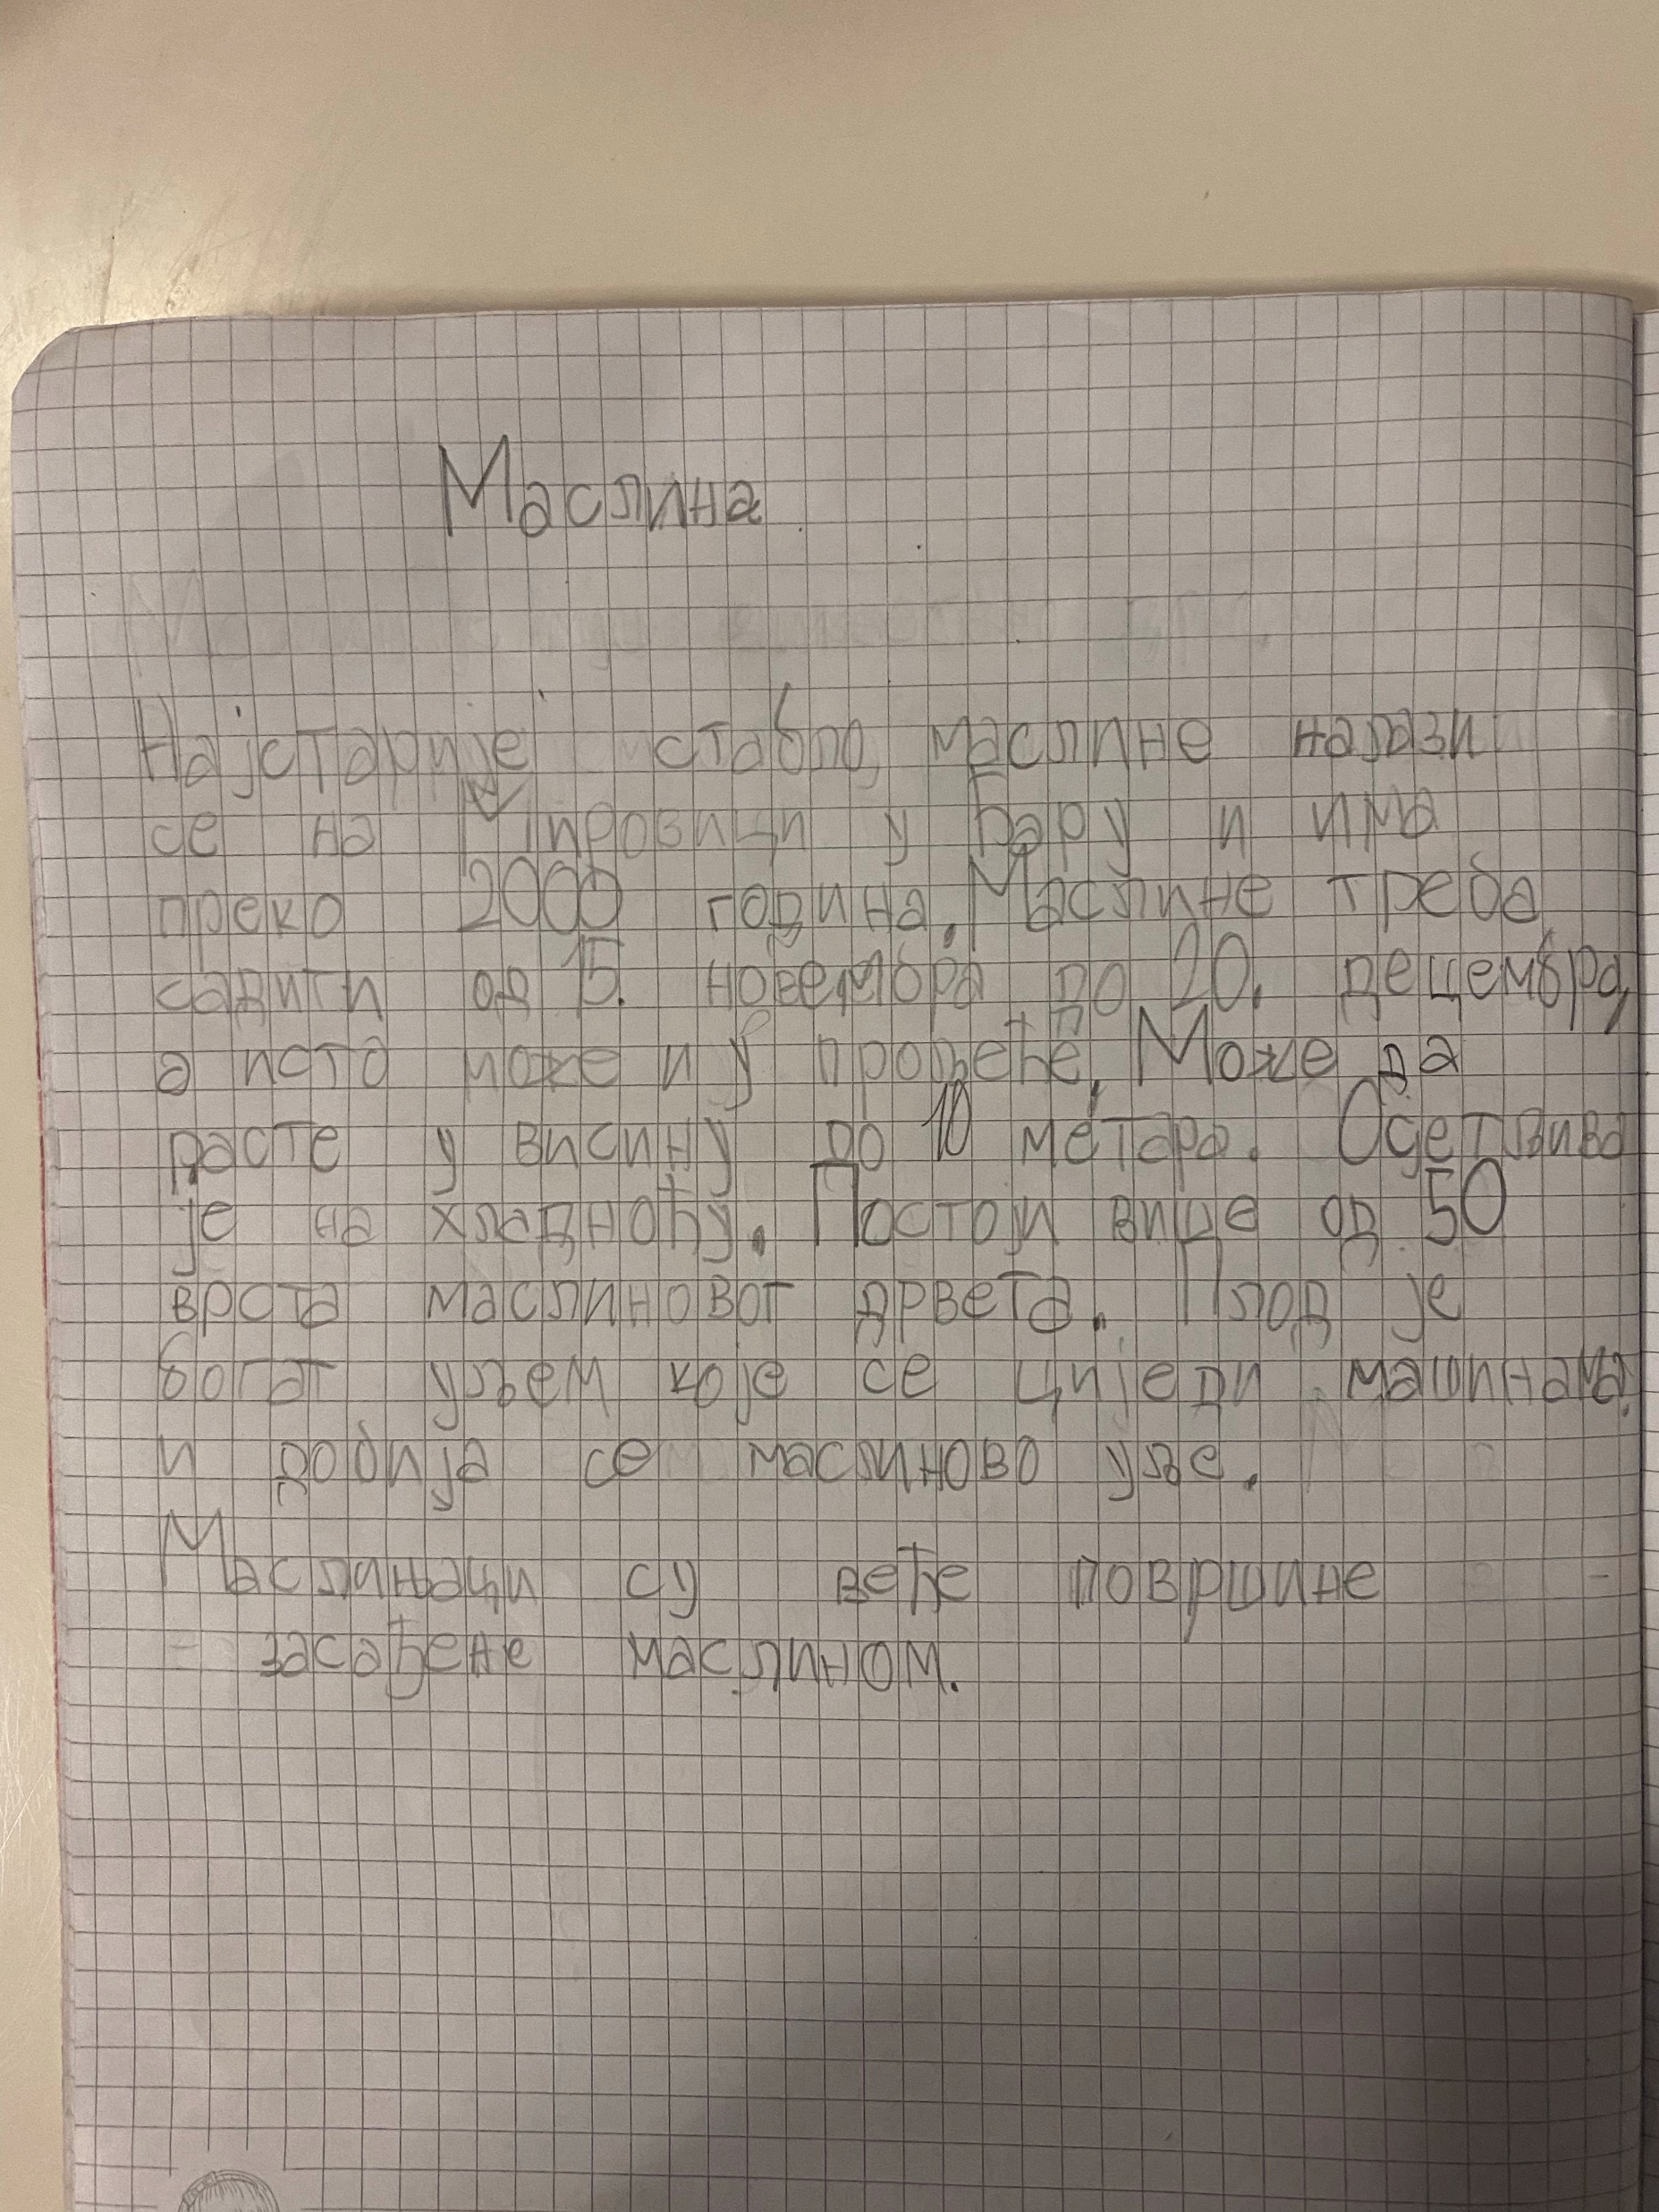 Маслина
Најстарије стабло маслине налази
се на Мировици у Бару и има
преко 2000 година. Маслине треба
садити од 15. новембра до 20. децембра,
а исто може и у прољеће. Може да
расте у висину до 10 метара.
је на хладноћу. Постоји више од 50
врста маслиновог дрвета. Плод је
богат уљем које се циједи машинама
и добија се маслиново уље.
Маслињаци су веће површине
засађене маслином.